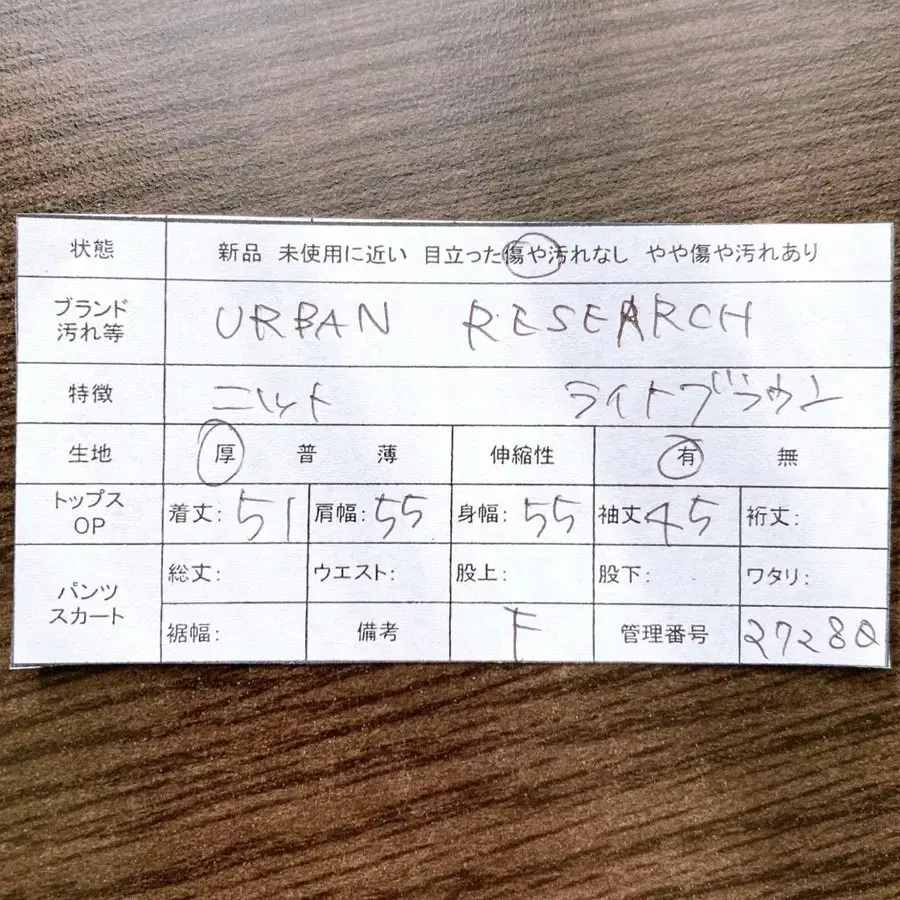 状態 新品 未使用に近い 目立った傷や汚れなし やや傷や汚れあり
ブランド
汚れ等 URBAN RESEARCH
特徴 ニット ライトブラウン
生地 厚 普 薄 伸縮性 有 無
トップス
OP 着丈: 51 肩幅: 55 身幅: 55 袖丈 45 裄丈:
パンツ
スカート 総丈: ウエスト: 股上: 股下: ワタリ:
裾幅: 備考 F 管理番号